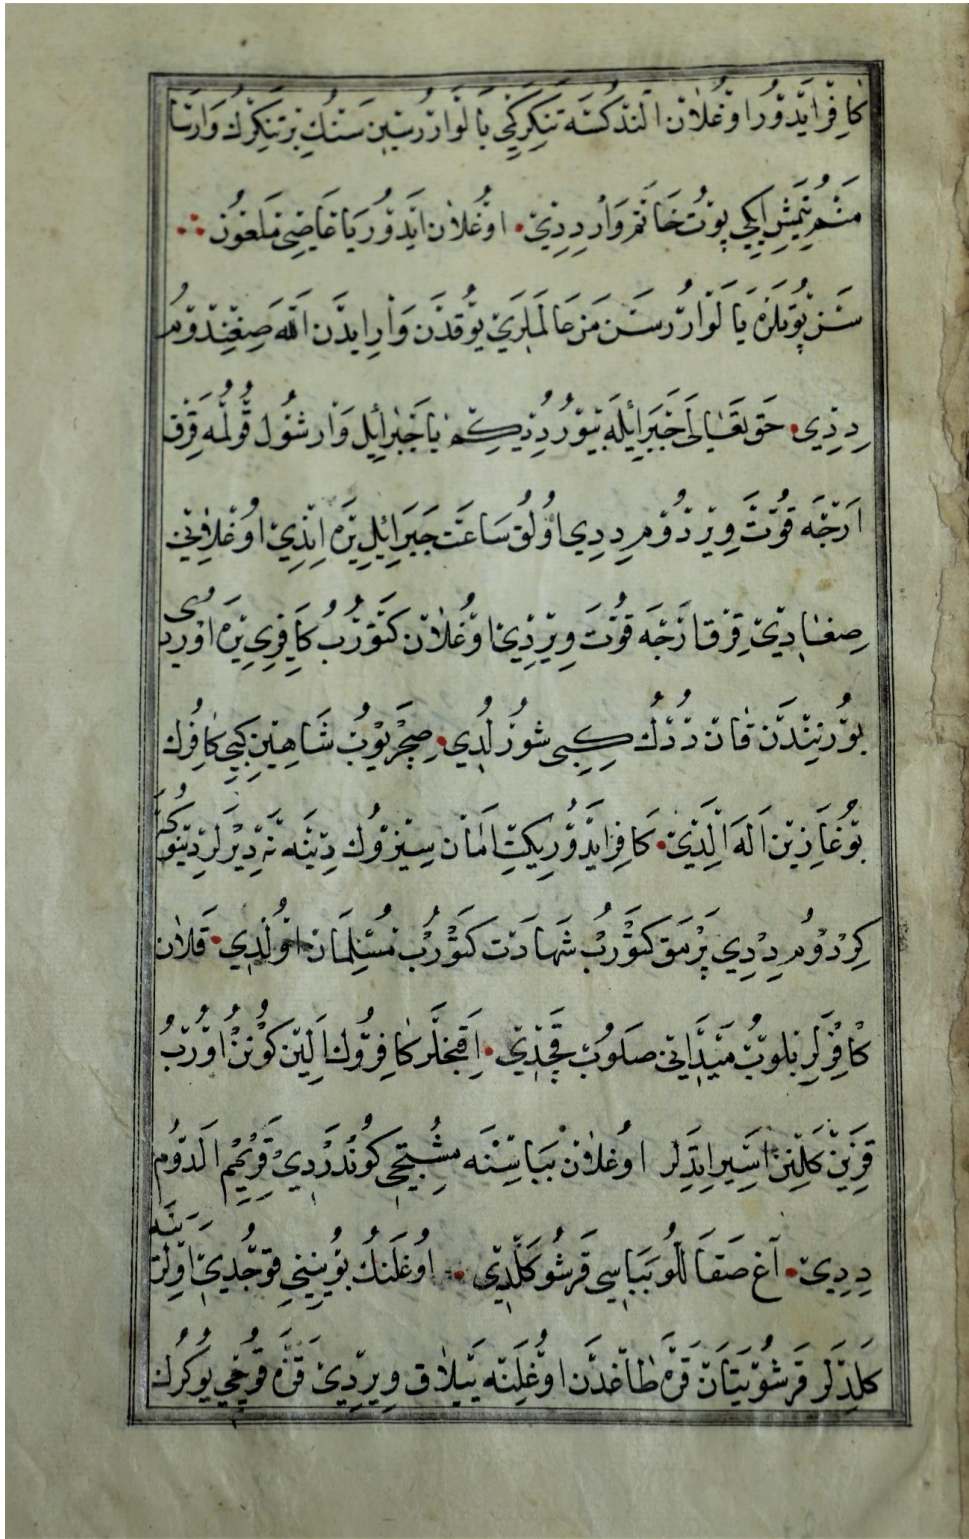 كافر ايدور اوغلان الندكسه تنكركى يالوارورسين سنك بر تنكرك وارسا
منم يتمش ايكى پوتخانم وار ددى اوغلان ايدور يا عاضى ملعون
سن پوتلره يالوارورسن من عالملرى يوقدن وار ايدن الله صغندوم
ددى حق تعالى جبرائيله بيوردى كم يا جبرائيل وار شول قولمه قرق
ارجه قوت ويردوم ددى اولق ساعت جبرائيل يره اندى اوغلانى
صغادى قرق ارجه قوت ويردى اوغلان كتوروب كافرى يره اوردى
بورنيندن قان دودك كبى شورلدى صچريوب شاهين كبى كافرك
بوغازين اله الدى كافر ايدور يكت امان سيزوك دينه نه ديرلر دينوكه
كردوم ددى پرمق كتوروب شهادت كتوروب مسلمان اولدى قلان
كافرلر بلوب ميدانى صلوب قچدى اقنجلر كافروك الين كونن اوروب
قزين كلينن اسير ايتديلر اوغلان بباسنه مشتجى كوندردى قريم الدوم
ددى آغ صقاللو بباسى قرشو كلدى اوغلنك بوينى قوجدى اولرينه
كلدلر قرشو يتان قره طاغدن اوغلنه ييلاق ويردى قره قوچى يوكرك